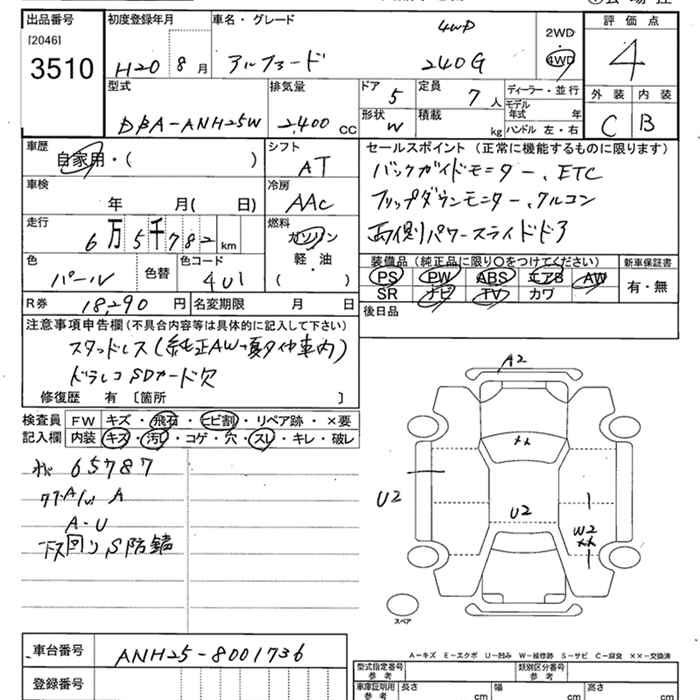 出品番号 初度登録年月 車名・グレード 4WD 2WD 評価点
[2046]
3510 H20 8月 アルファード 240G 4WD 4
型式 排気量 ドア 5 定員 7人 ディーラー・並行 外装 内装
DBA-ANH25W 2,400 CC 形状 W 積載 kg モデル年式 年 C B
ハンドル 左・右
車歴 シフト セールスポイント (正常に機能するものに限ります)
自家用・( ) AT バックガイドモニター、ETC
車検 冷房 フリップダウンモニター、クルコン
年 月( 日) AAC 両側パワースライドドア
走行 燃料
6万5千782km ガソリン
軽油
・
( )
装備品(純正品に限り○をつけてください) 新車保証書
色 色替 色コード PS PW ABS エアB AW 有・無
パール 4U1 SR ナビ TV カワ
R券 18,290円 名変期限 月 日 後日品
注意事項申告欄(不具合内容等は具体的に記入して下さい)
スタッドレス(純正AW
車内)
ドラレコSDカード欠
修復歴 有 〔箇所 〕
検査員 FW キズ・飛石・ヒビ割・リペア跡・×要
記入欄 内装 キズ・汚レ・コゲ・穴・スレ・キレ・破レ
65787
A
A・U
下回りS防錆
A2
U2
U2
W2
スペア
A−キズ E−エクボ U−凹み W−補修跡 S−サビ C−腐食 ××−交換済
車台番号 ANH25-8001736
登録番号
型式指定番号 類別区分番号
参考 参考
車庫証明用 長さ 幅 高さ
参考 cm cm cm